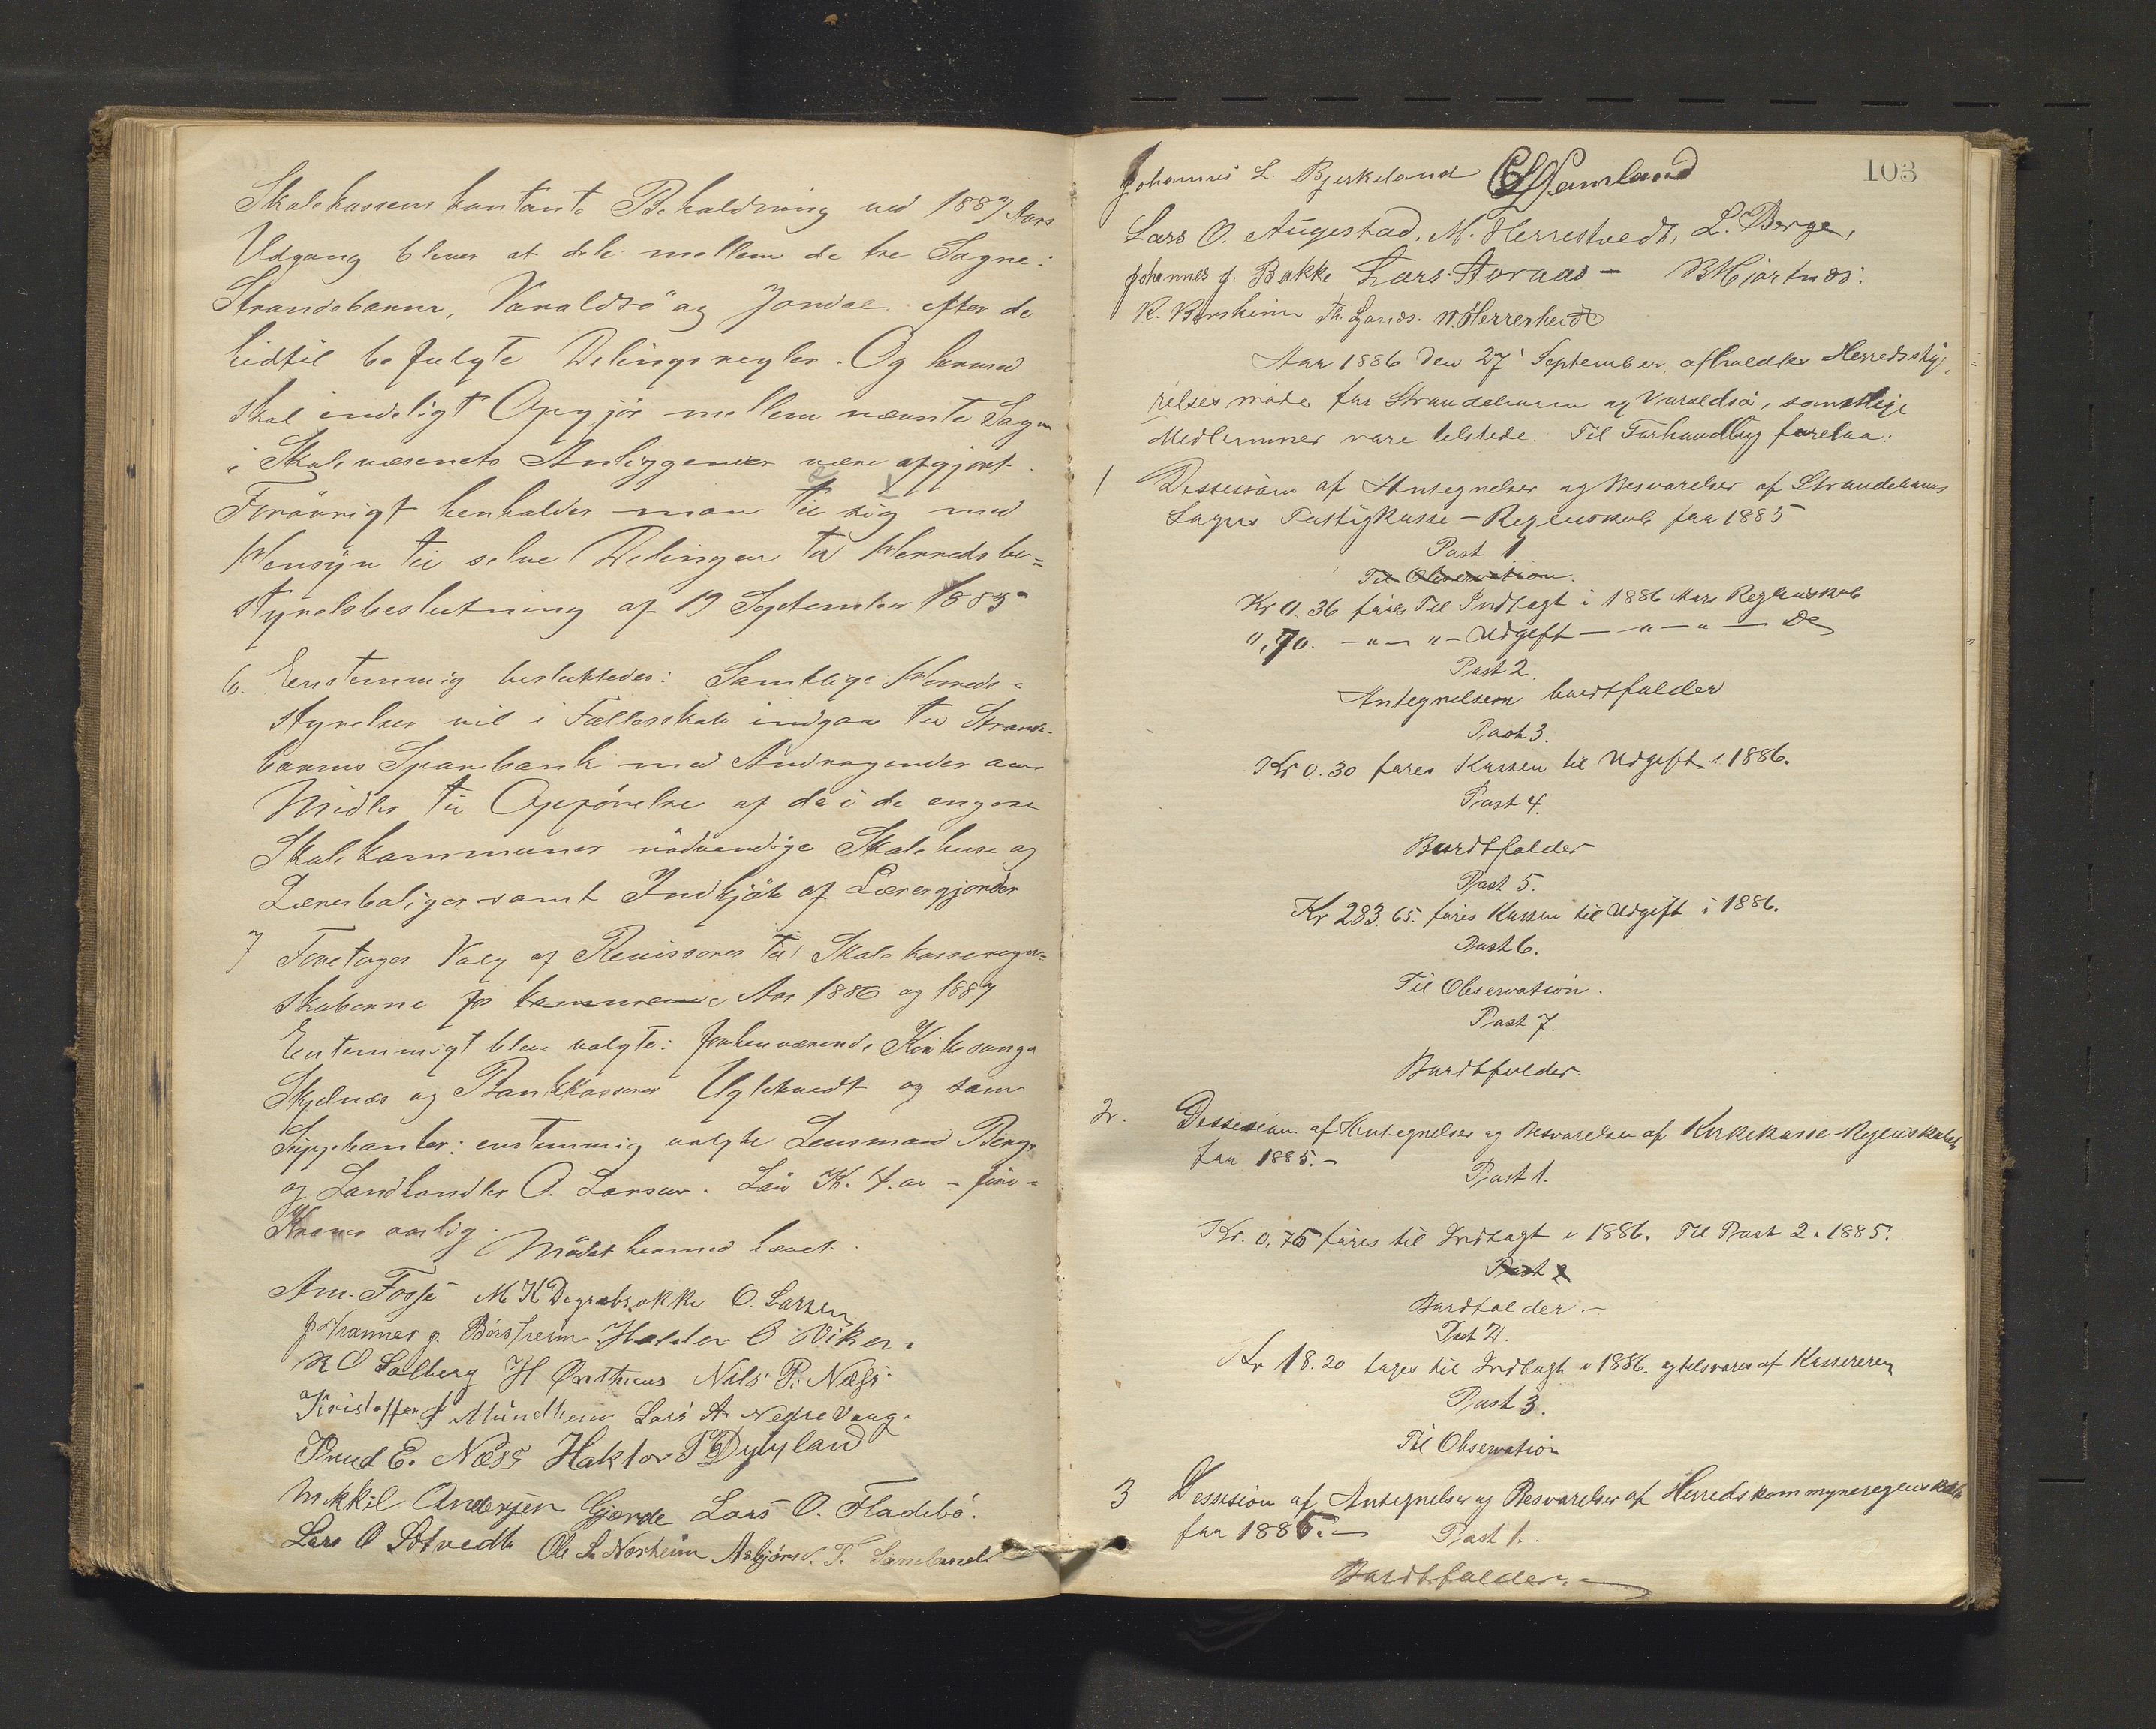 Skolekassens kontante Beholdning ved 1887 Aars
Udgang bliver at dele mellem de tre Sogne:
Strandebarm, Varaldsö og Jondal efter de
hidtil befulgte Delingsregler. Og hermed
skal endeligt Opgjör mellem nævnte Sogne
i Skolevæsenets Anliggender være afgjort.
Forövrigt henholder man til sig med
Hensÿn til selve Delingen til Herredsbe=
styrelsbeslutning af 19 September 1885
6. Enstemmig besluttedes: Samtlige Herreds=
styrelser vil i Fællesskab indgaa til Strande-
barms Sparebank med Andragender om
Midler til Opförelse af de i de engere
Skolekommuner nödvendige Skolehuse og
Lærerboliger samt Indkjöb af Lærergjorder
7 Foretoges Valg af Revisorer til Skolekasseregn=
skaberne for kommende Aar 1886 og 1887
Enstemmigt blev valgte: forhenværende Kirkesanger
Skjelnæs og Bankkasserer Uglehvedt og som
Suppleanter: enstemmig valgte Lensmand Berge
og Landhandler O. Larsen. Lön Kr. 4.00 - fire -
Kroner aarlig.
Mödet hermed hævet.
Am. Fosse M K Dÿgrabrokke O. Larsen
Johannes J. Börsheim Haldor O Viken.
K O Solberg H Nils P. Næss
Kristoffer J Mündheim Lars A Nedre Vaage
Knud E. Næss Haktor
Mikkil Andersen Gjerde Lars O. Fladebö.
Lars O Sötvedt Ole L Norheim Asbjörn T. Samland
103
Johannes L. Bjerkeland Samland
Lars O. Augestad. M. Herrestvedt, L. Berge,
Johannes J. Bakke Lars Avraas - B Hjortnæs:
K. Börsheim N. Herrestvedt
Aar 1886 den 27' September afholdtes Herredssty,
relses möde for Strandebarm og Varaldsö, samtlige
Medlemmer vare tilstede. Til Forhandling forelaa:
1 Dessision af Antegnelser og Besvarelser af Strandebarms
Sogns Fattigkasse - Regnskab for 1885
Post 1
Til Observation.
Kr 0.36 föres Til Indtægt i 1886 Aars Regnskab
0,70. - " - " - Udgift - " - " - Do
Post 2.
Antegnelsen bortfalder
Post 3.
Kr 0.30 föres Kassen til Udgift i 1886.
Post 4.
Bortfalder
Post 5.
Kr 283.65. föres Kassen til Udgift i 1886.
Post 6.
Til Observation.
Post 7.
Bortfalder.
2. Dessision af Antegnelser og Besvarelser af Kirkekasse-Regnskabet
for 1885. -
Post 1.
Kr. 0,75 föres til Indtægt i 1886. Til Post 2 i 1885.
Post 2
Bortfalder. -
Post 2.
Kr 18.20 tages til Indtægt i 1886. og tilsvares af Kassereren
Post 3.
Til Observation
3 Dessision af Antegnelser og Besvarelser af Herredskommuneregnskab
for 1885. -
Post 1.
Bortfalder. -